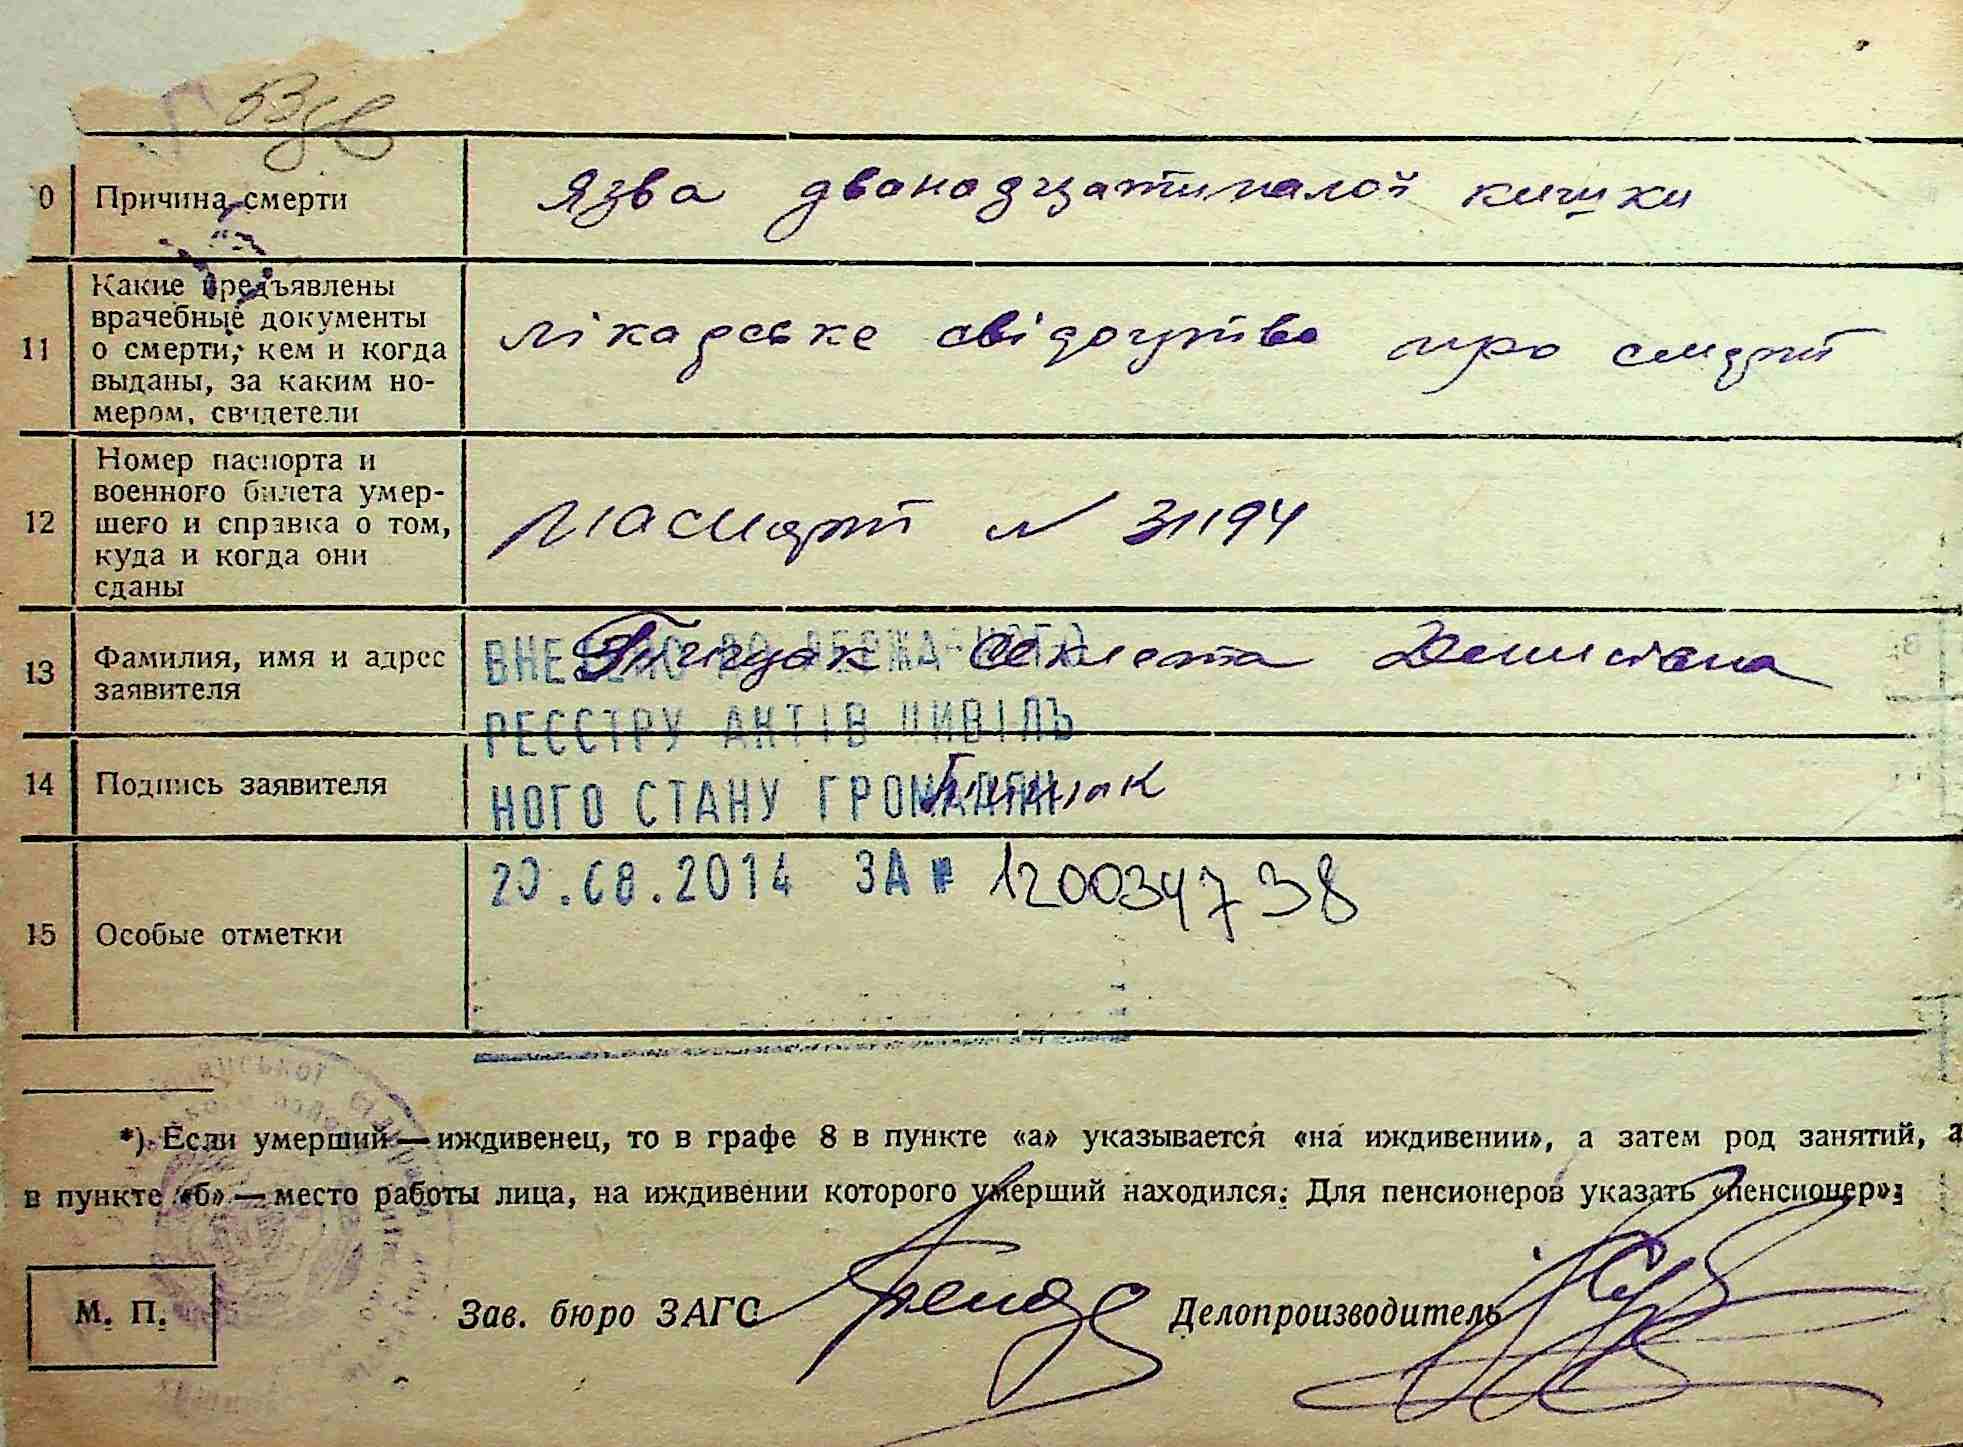 0 Причина смерти
Язва дванадцатипалой кишки
11 Какие предъявлены
врачебные документы
о смерти, кем и когда
выданы, за каким но-
мером, свидетели
лікарське свідоцтво про смерть
12 Номер паспорта и
военного билета умер-
шего и справка о том,
куда и когда они
сданы
Паспорт N 31194
13 Фамилия, имя и адрес
заявителя
ВНЕСЕНО ДО ДЕРЖАВНОГО
РЕЄСТРУ АКТІВ ЦИВІЛЬ
14 Подпись заявителя
НОГО СТАНУ ГРОМАДЯН
20.08.2014 ЗА № 120034738
15 Особые отметки
*) Если умерший — иждивенец, то в графе 8 в пункте «а» указывается «на иждивении», а затем род занятий, а
в пункте «б» — место работы лица, на иждивении которого умерший находился. Для пенсионеров указать «пенсионер».
М. П. Зав. бюро ЗАГС Делопроизводитель